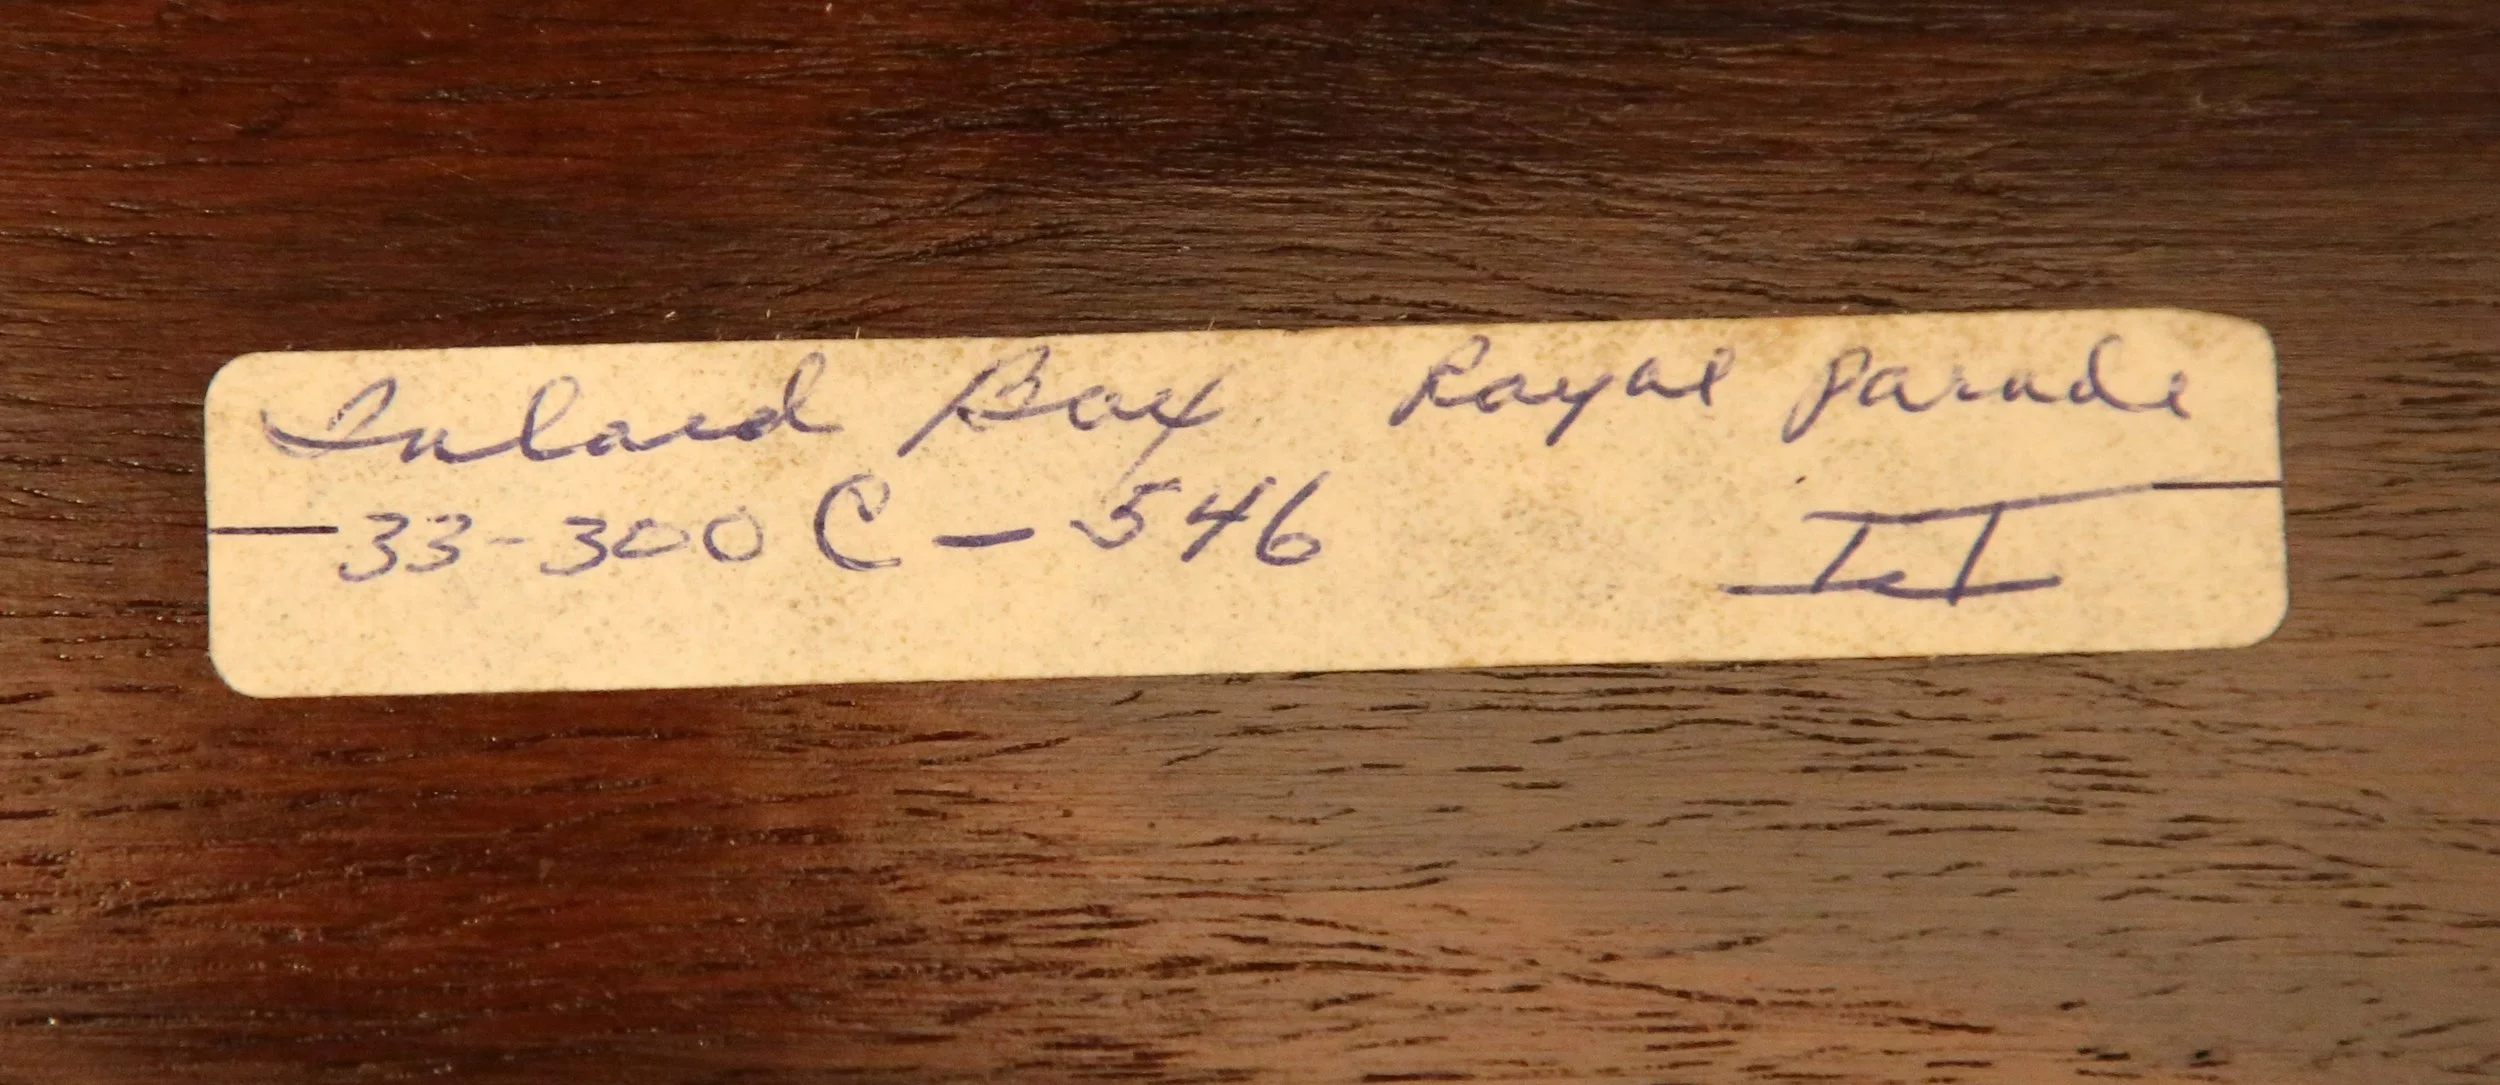 Inlaid Box Royal Parade
33-300 C - 546 II